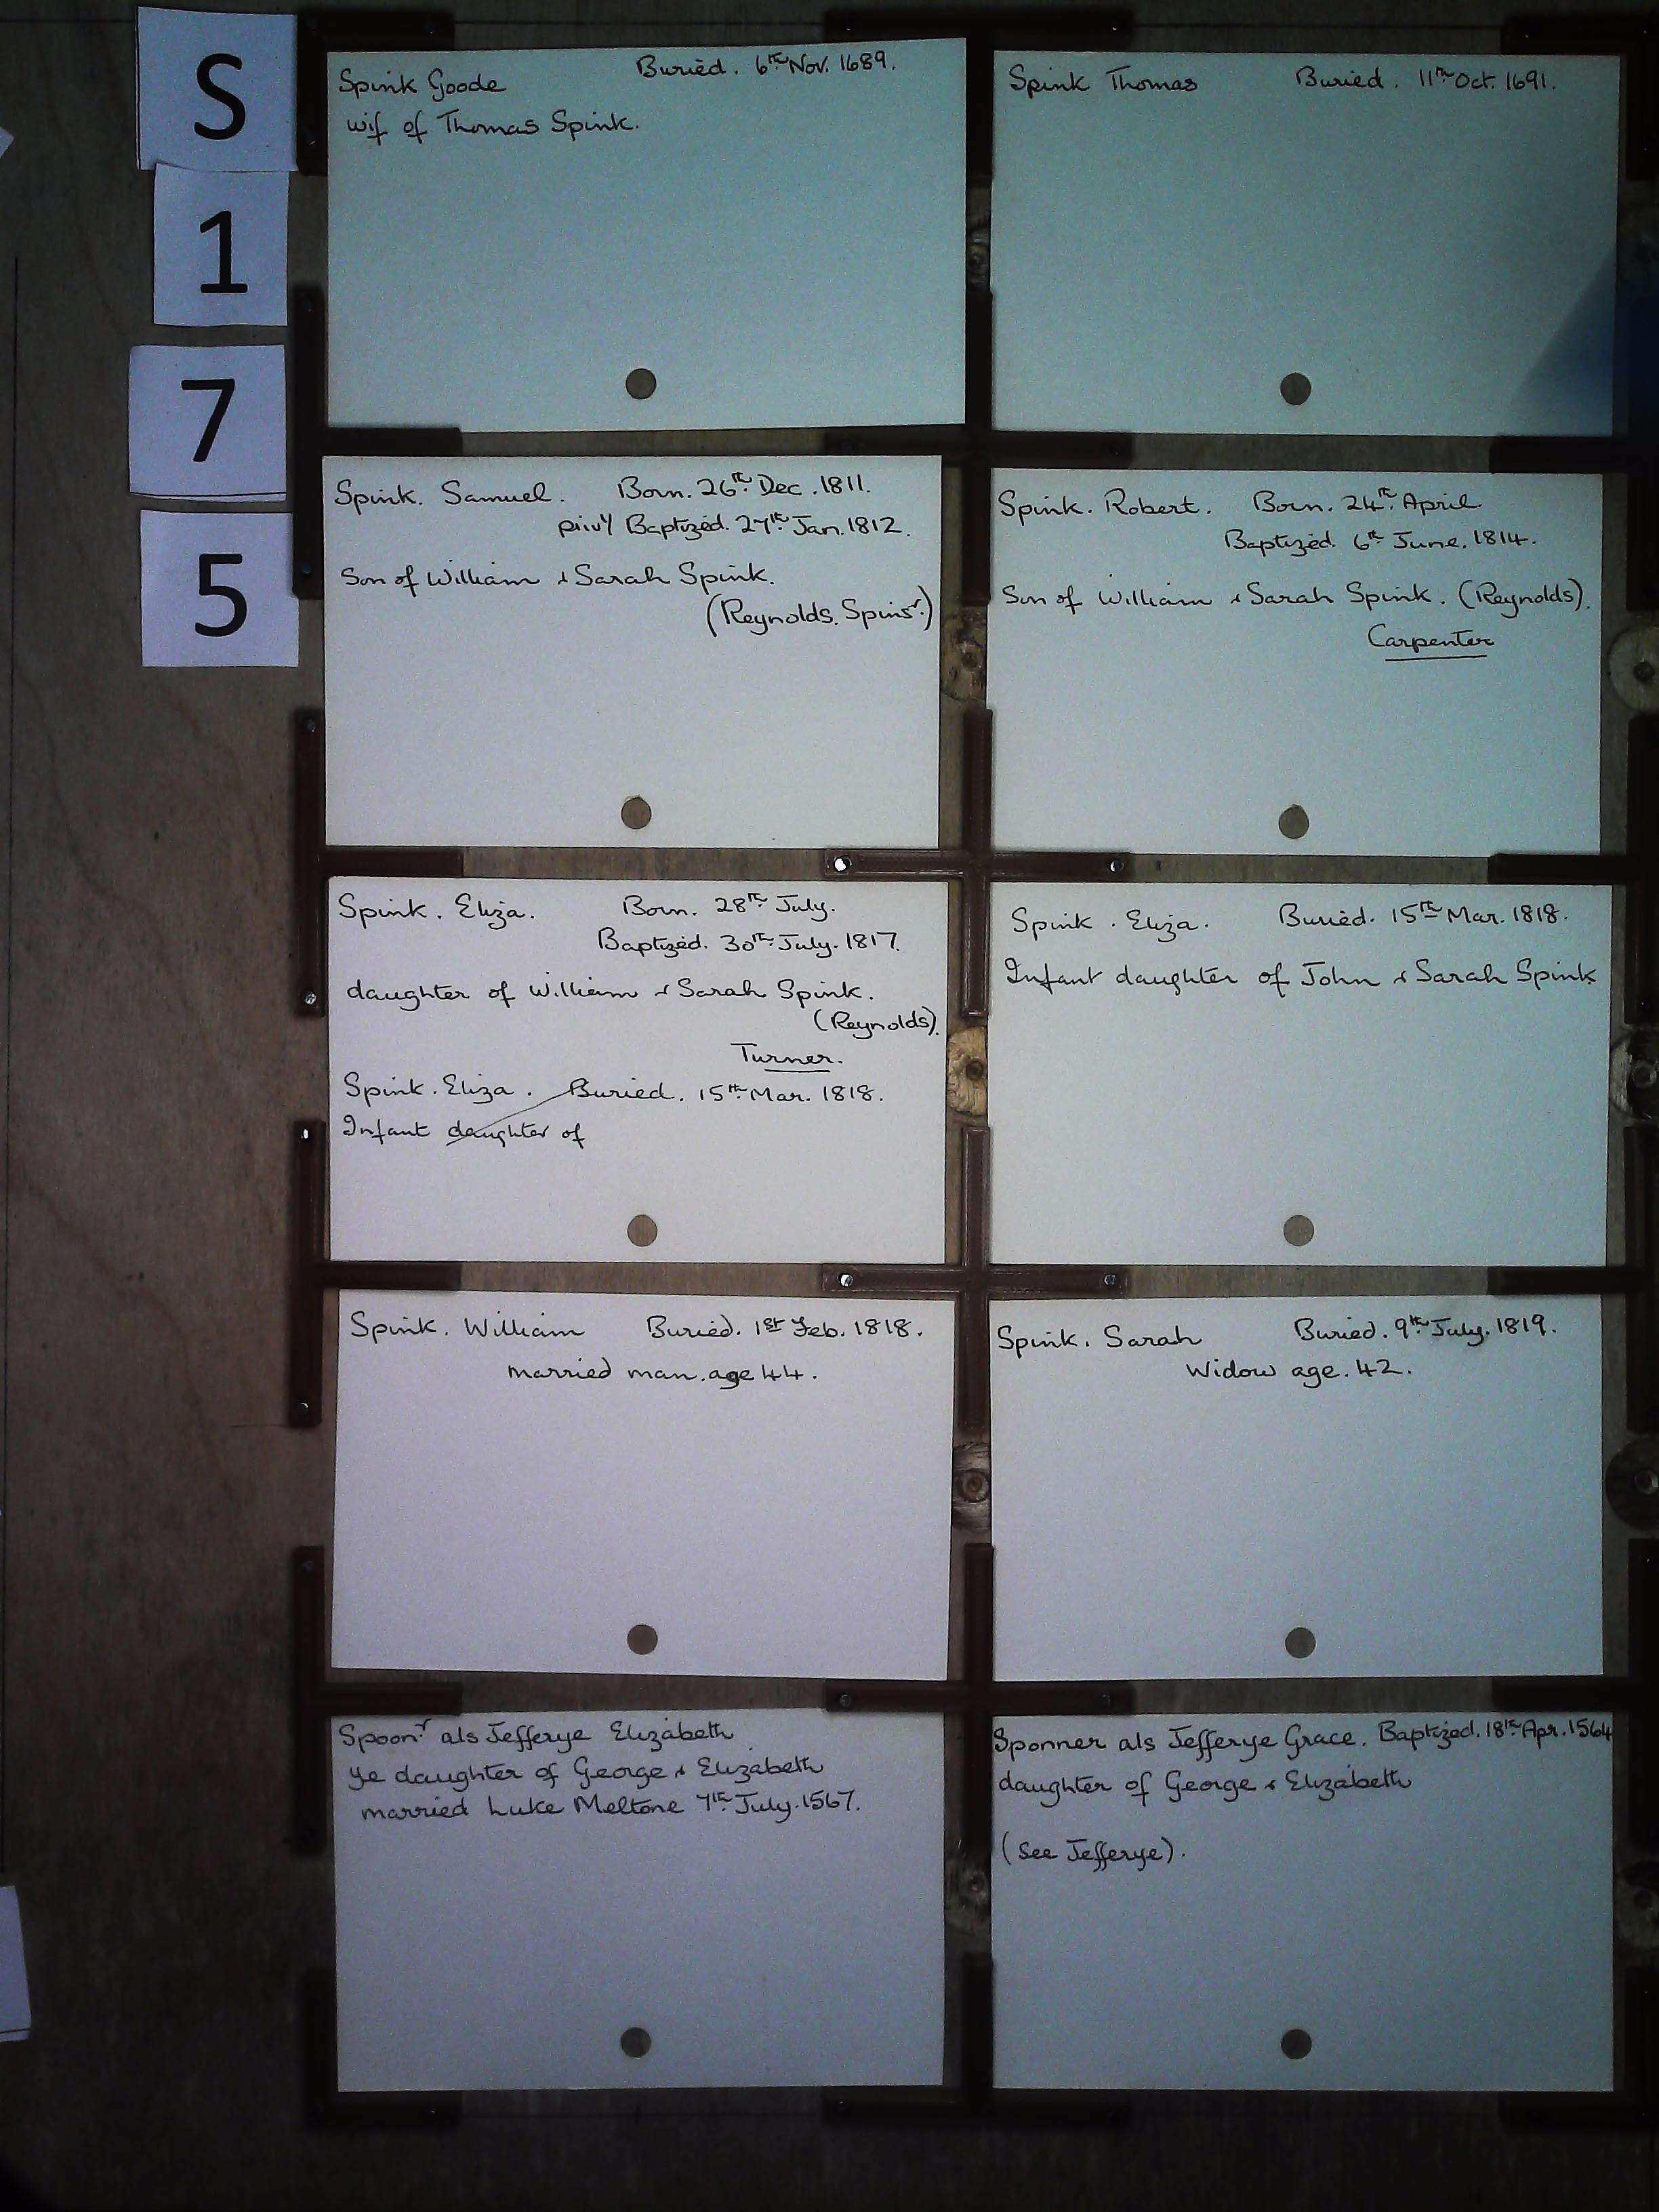 S
1
7
5
Spink Goode Buried. 6th Nov. 1689.
wif of Thomas Spink.
Spink Thomas Buried. 11th Oct. 1691.
Spink. Samuel. Born. 26th Dec. 1811.
privy Baptized. 27th Jan. 1812.
Son of William & Sarah Spink.
(Reynolds. Spinsr.)
Spink. Robert. Born. 24th April.
Baptized. 6th June. 1814.
Son of William & Sarah Spink. (Reynolds).
Carpenter
Spink. Eliza. Born. 28th July.
Baptized. 30th July. 1817.
daughter of William & Sarah Spink.
(Reynolds).
Turner.
Spink. Eliza. Buried. 15th Mar. 1818.
Infant daughter of
Spink. Eliza. Buried. 15th Mar. 1818.
Infant daughter of John & Sarah Spink
Spink. William Buried. 1st Feb. 1818.
married man. age 44.
Spink. Sarah Buried. 9th July. 1819.
Widow age. 42.
Spoonr als Jefferye Elizabeth
ye daughter of George & Elizabeth
married Luke Meltone 7th July. 1567.
Sponner als Jefferye Grace. Baptized. 18th Apr. 1564
daughter of George & Elizabeth
(See Jefferye).